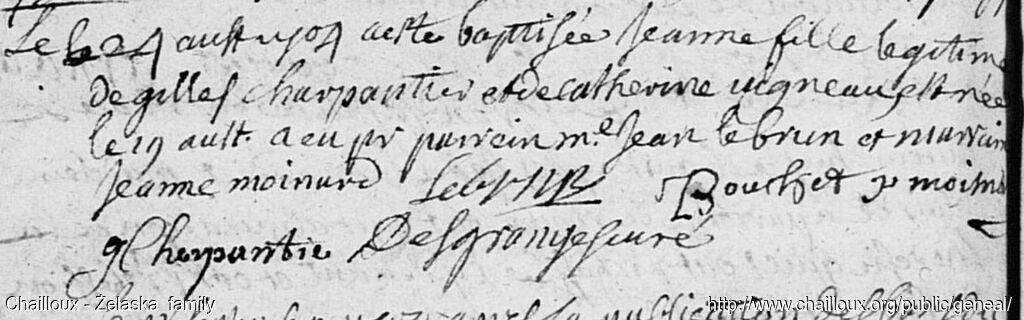 Le 24 aust 1704 aeste baptisée Jeanne fille legitime
de gilles charpantier et de catherine vigneau, est née
le 19 aust. a eu pr parrein me. Jean lebrun et marraine
Jeanne moinard Lebrun Bouchet
g Cherpantie Desgranges curé
Chailloux - Želaska family
http://www.chailloux.org/public/geneal/